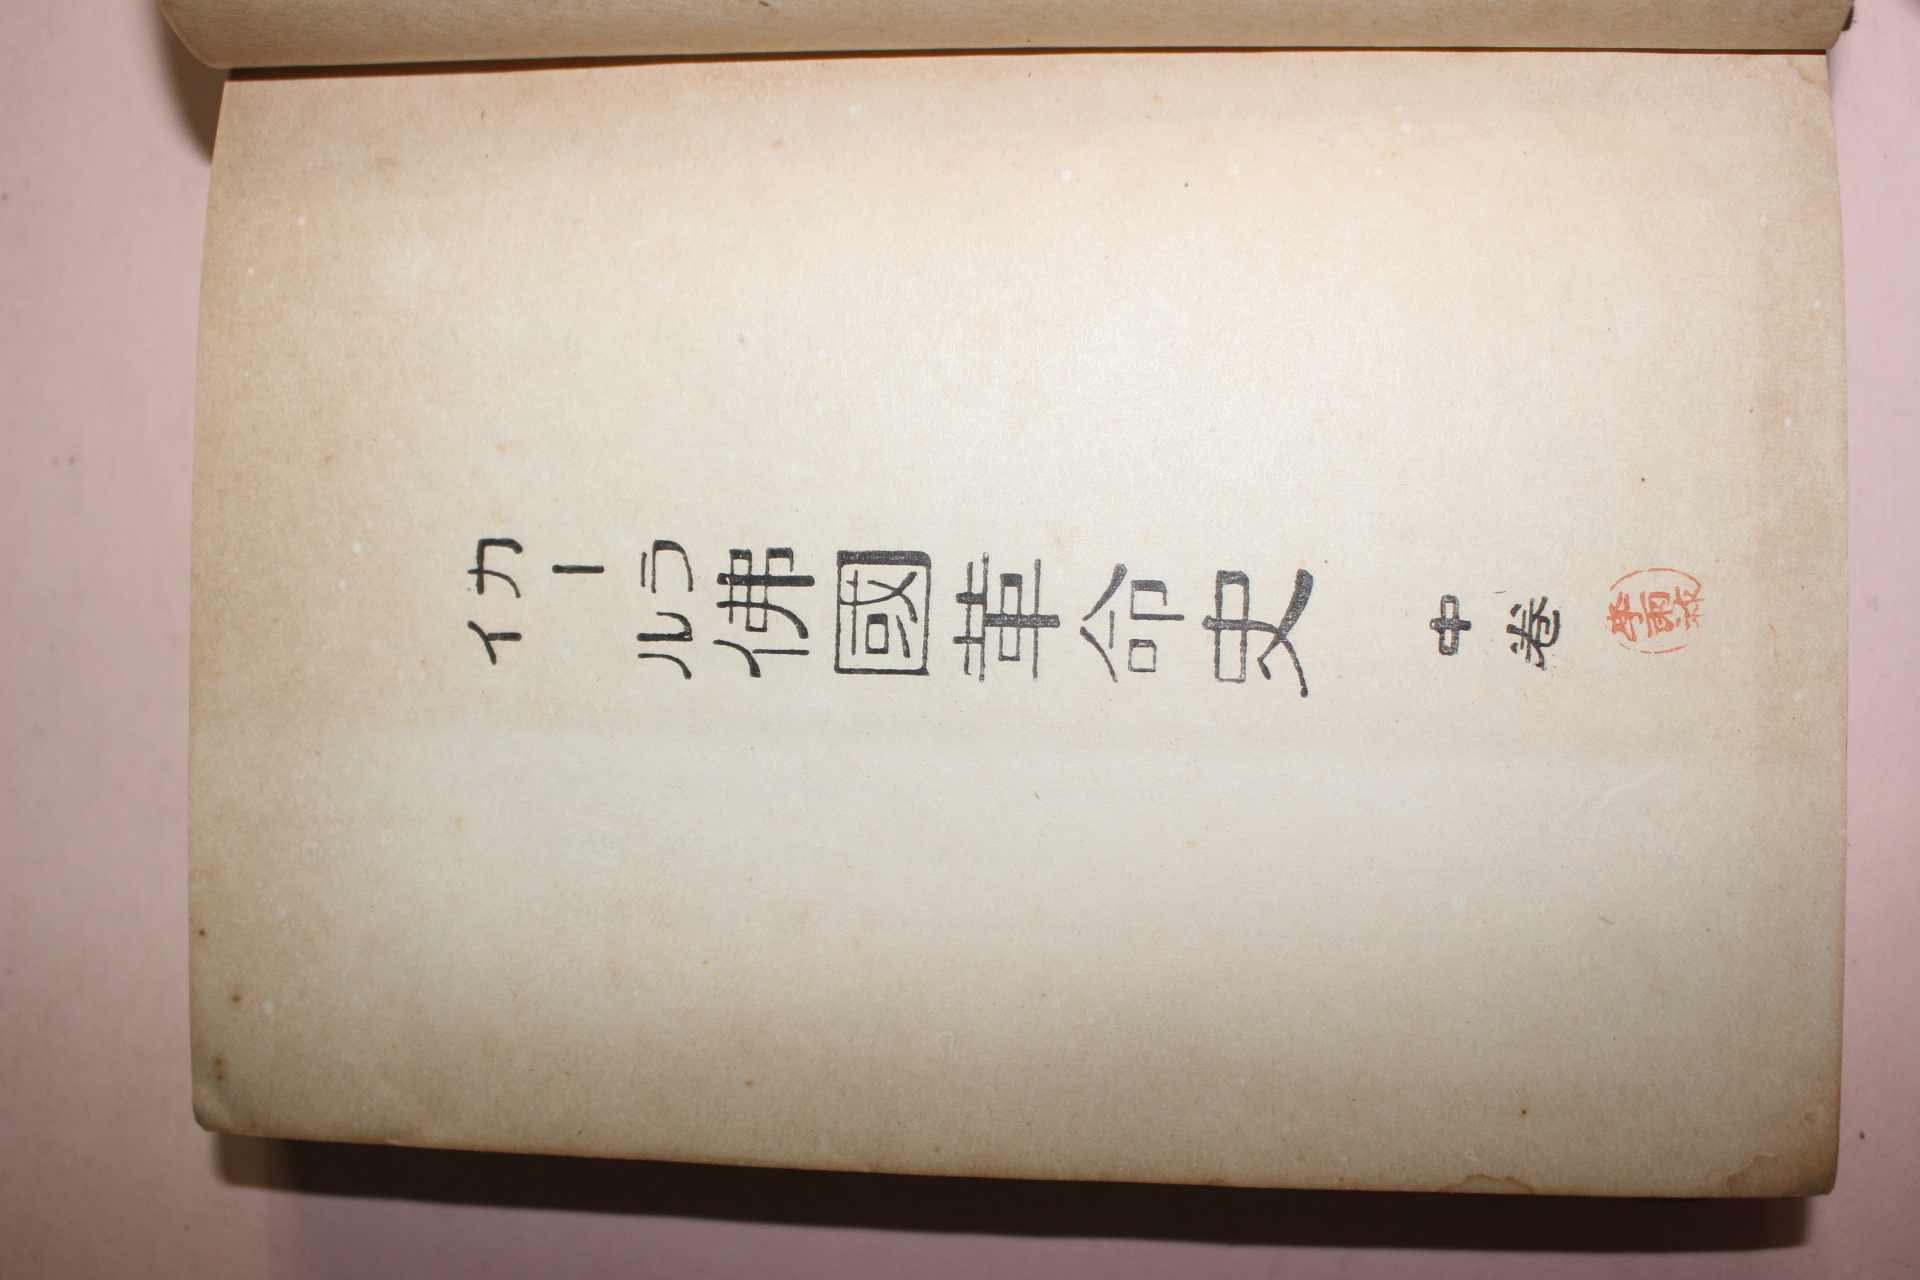 カーライル佛國革命史 中卷